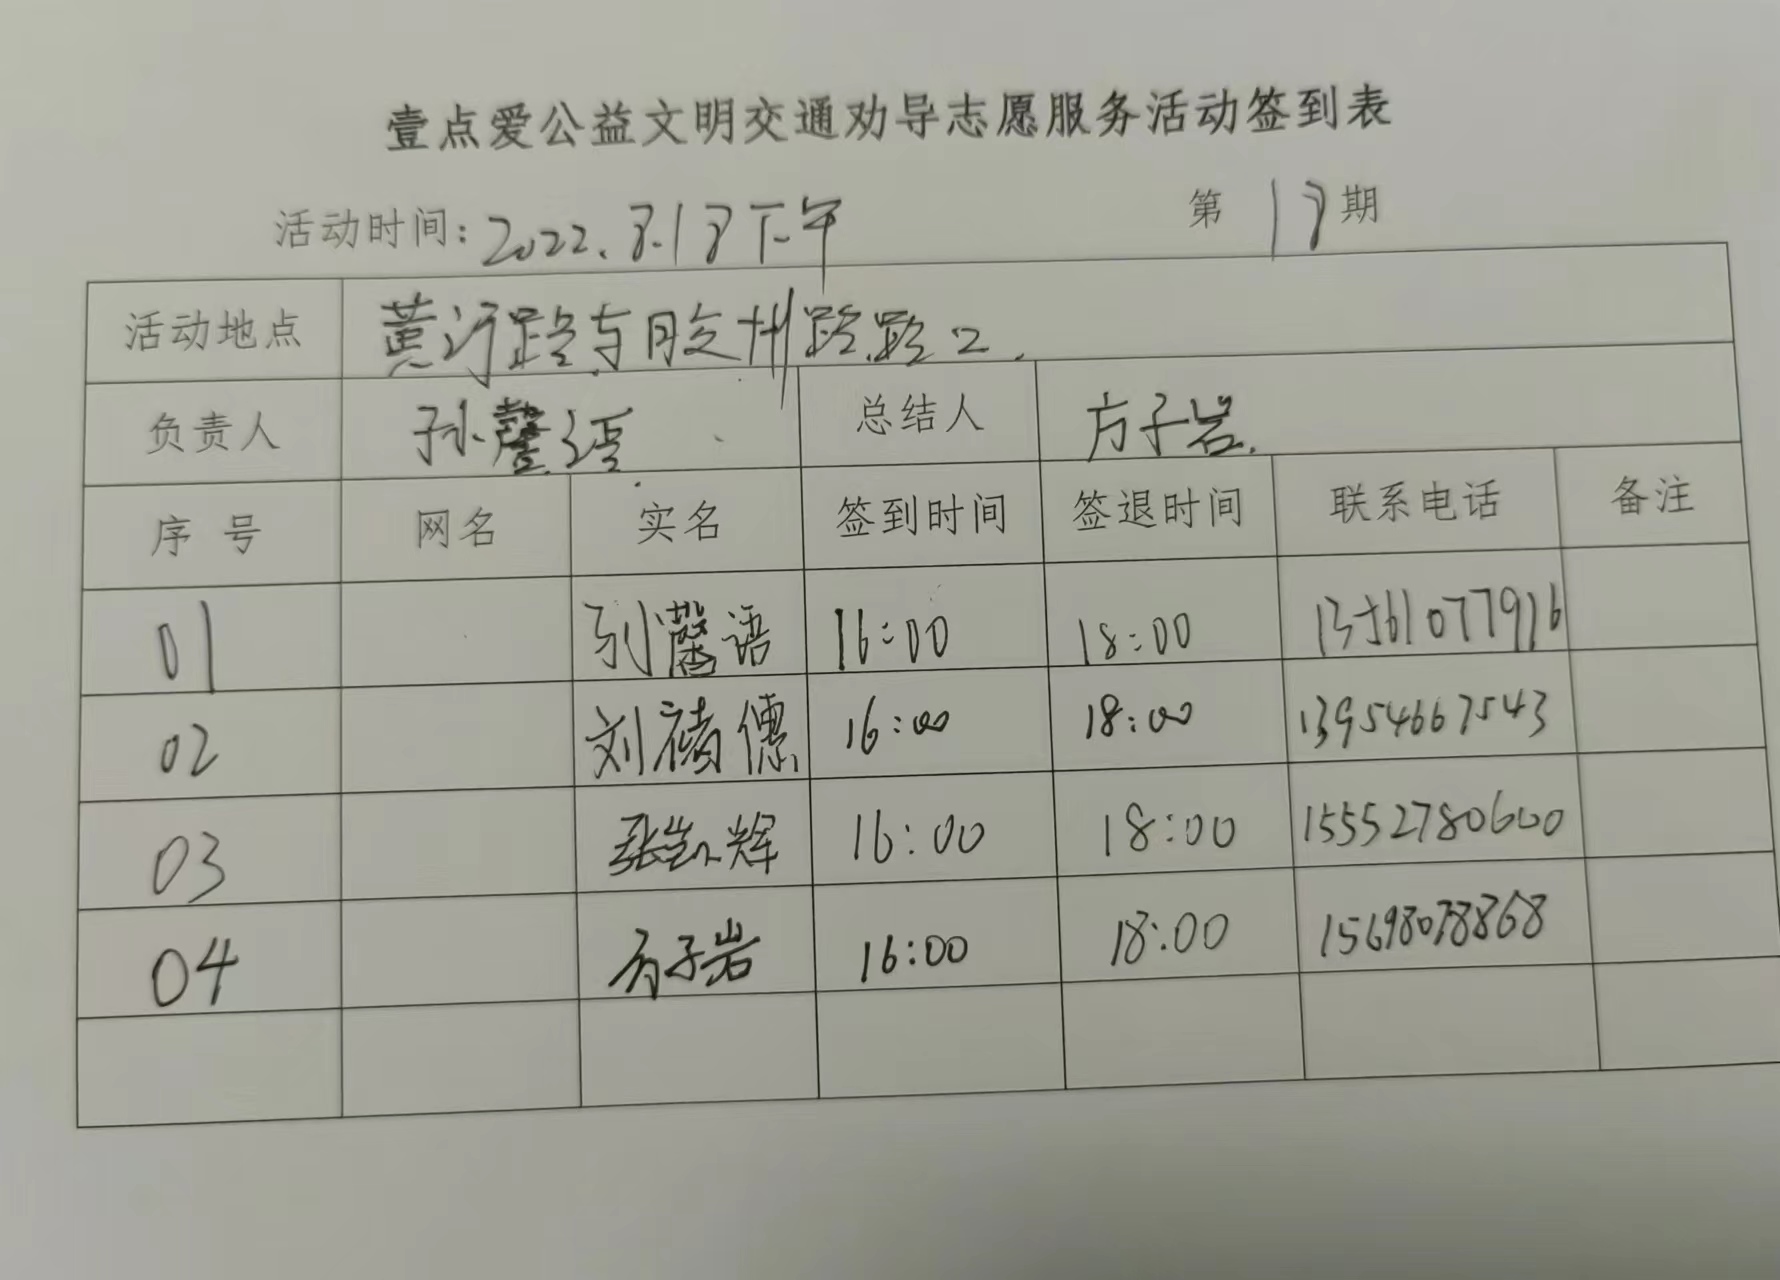 壹点爱公益文明交通劝导志愿服务活动签到表
活动时间: 2022.8.18下午 第 18 期
活动地点 黄河路与胶州路路口.
负责人 孙馨语 总结人 方子岩.
序号 网名 实名 签到时间 签退时间 联系电话 备注
01 孙馨语 16:00 18:00 13561077916
02 刘禧儒 16:00 18:00 13954667543
03 张凯辉 16:00 18:00 15552780600
04 方子岩 16:00 18:00 15698078868